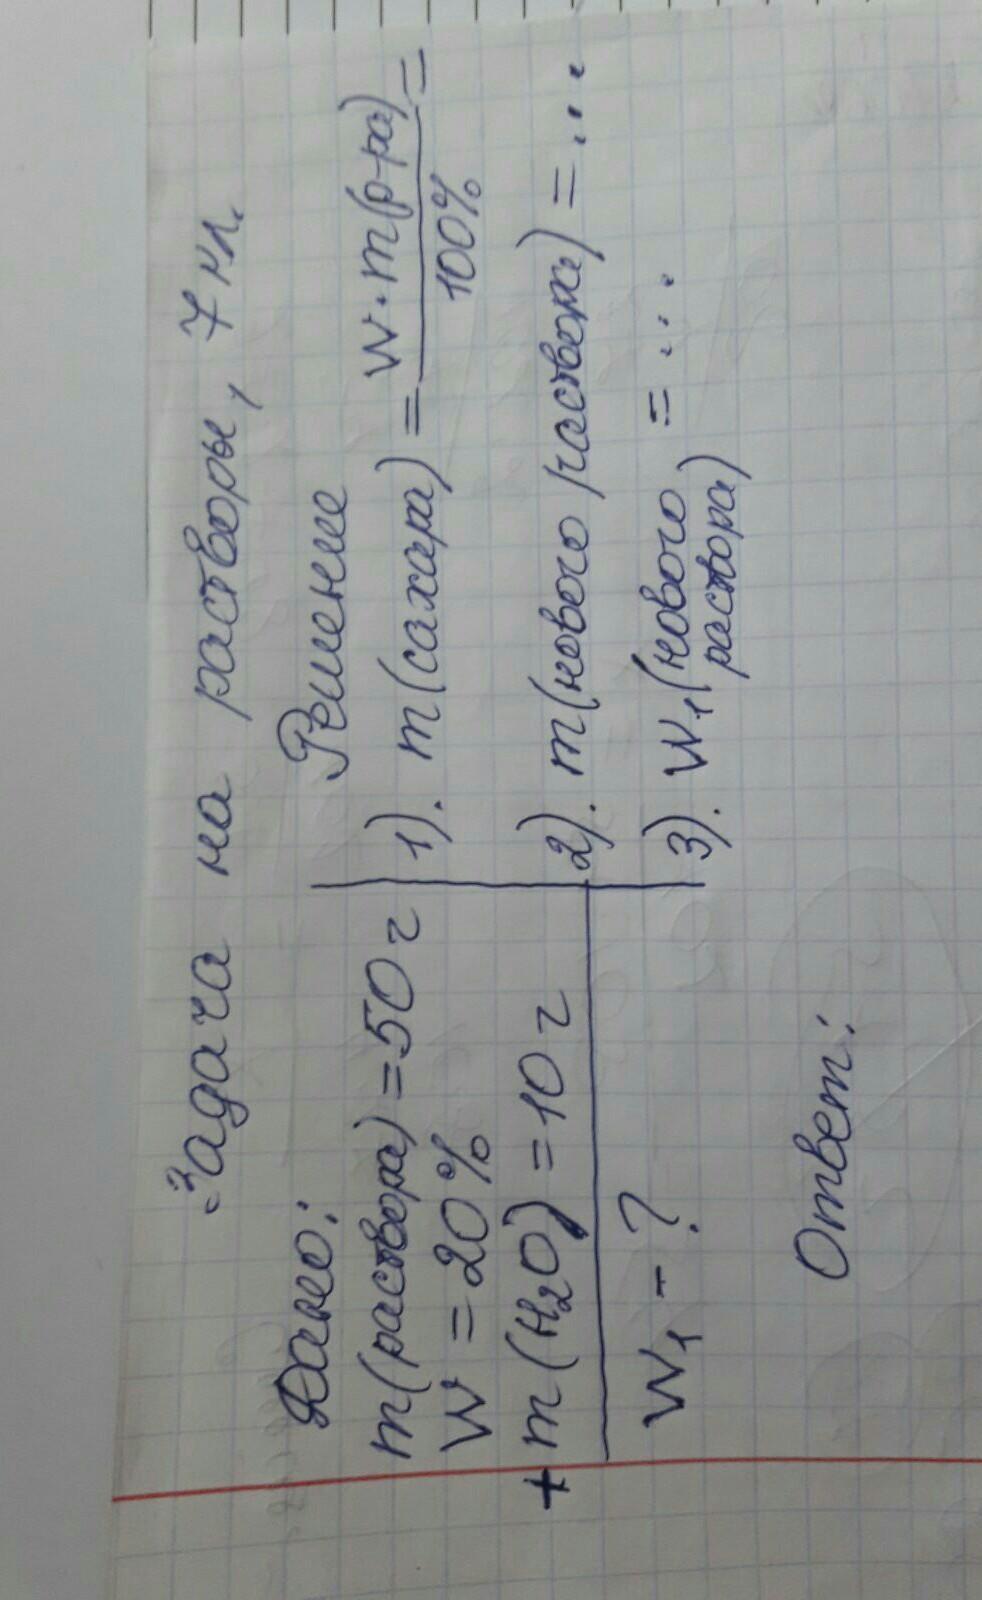 Задача на растворы, 7 кл.
Дано:
m(раствора)=50 г
W = 20%
+ m(H₂O) = 10 г
W₁ - ?
Решение
1). m(сахара) = W·m(р-ра) / 100% =
2). m(нового раствора) = ...
3). W₁(нового раствора) = ...
Ответ: